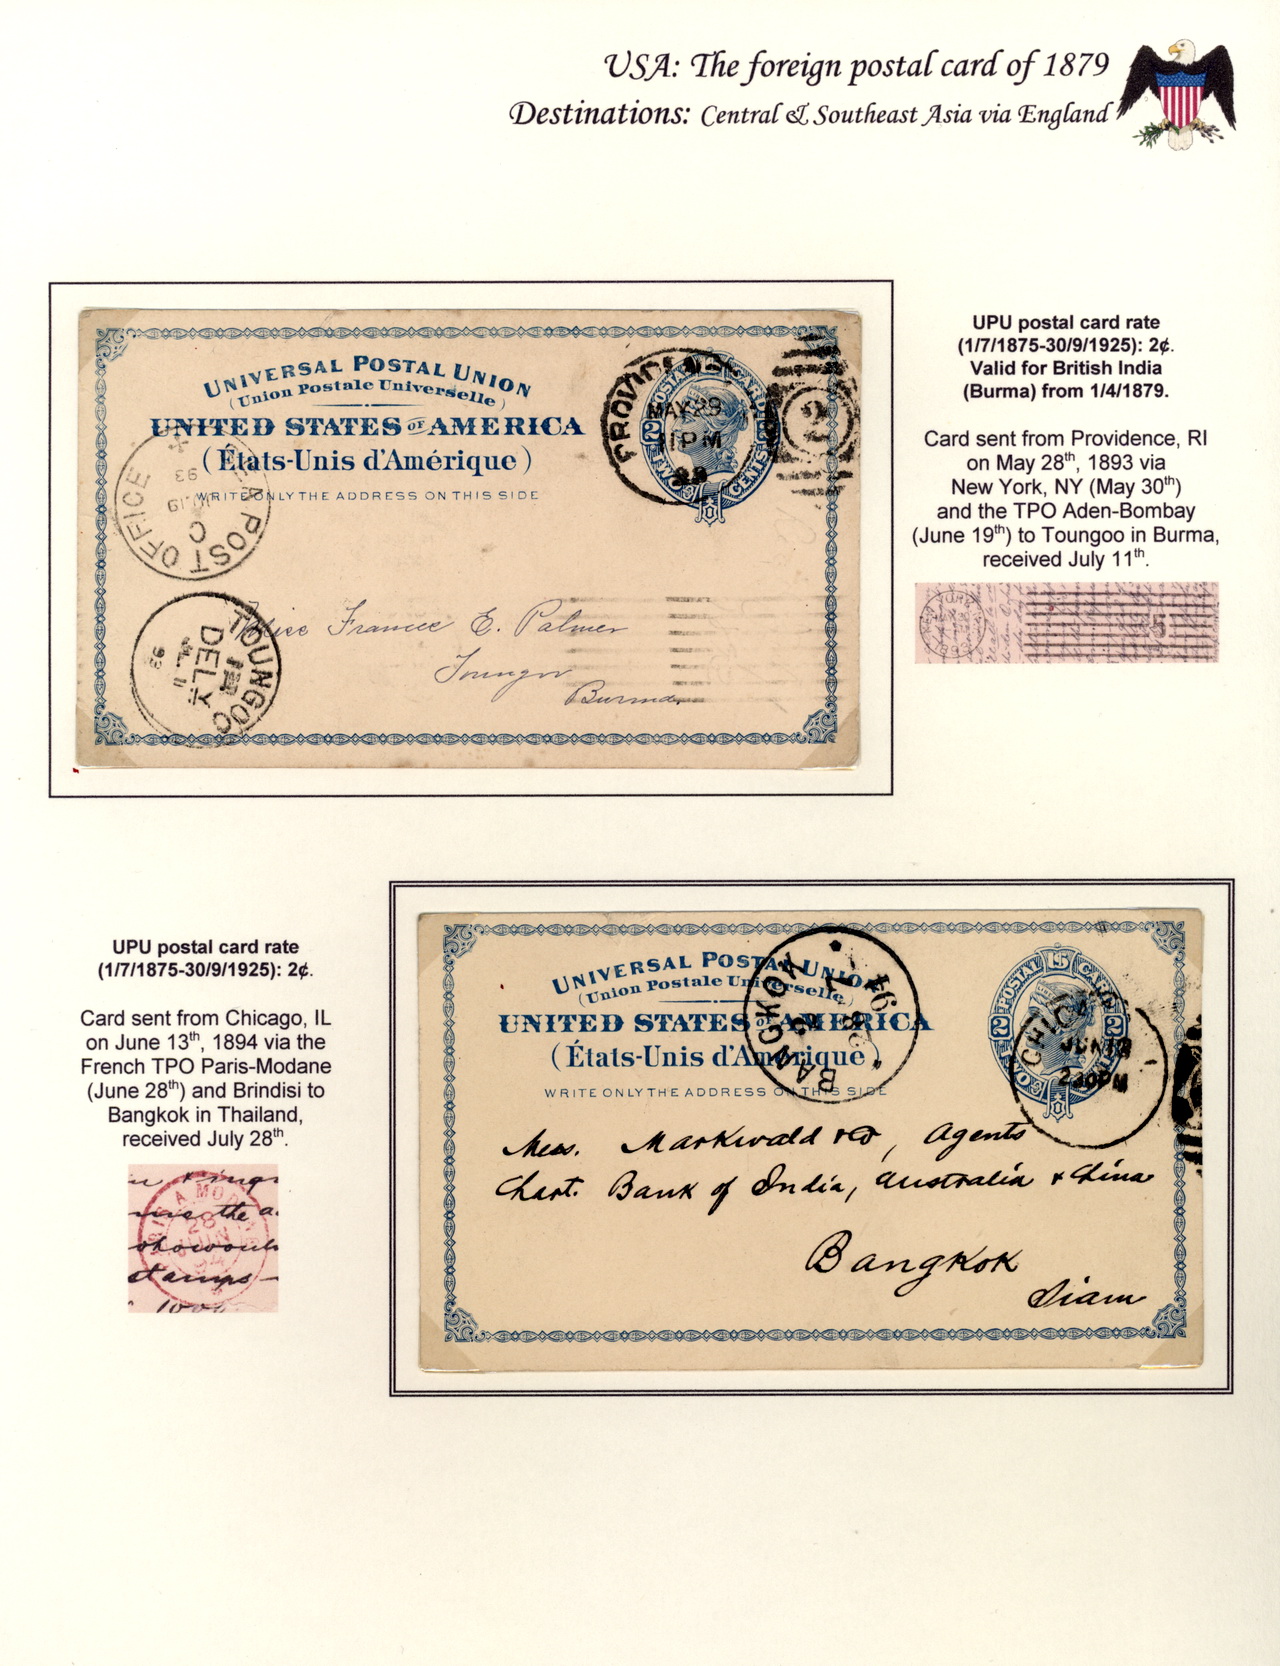 USA: The foreign postal card of 1879
Destinations: Central & Southeast Asia via England
UNIVERSAL POSTAL UNION
(Union Postale Universelle)
UNITED STATES OF AMERICA
(États-Unis d'Amérique)
WRITE ONLY THE ADDRESS ON THIS SIDE
POSTAL CARD
2 2
CENTS
MAY 29
11 PM
2
POST OFFICE
C
93
TOUNGOO
DELY
11
93
France E. Palmer
Toungoo
Burma
UPU postal card rate
(1/7/1875-30/9/1925): 2¢.
Valid for British India
(Burma) from 1/4/1879.
Card sent from Providence, RI
on May 28th, 1893 via
New York, NY (May 30th)
and the TPO Aden-Bombay
(June 19th) to Toungoo in Burma,
received July 11th.
NEW YORK
UPU postal card rate
(1/7/1875-30/9/1925): 2¢.
Card sent from Chicago, IL
on June 13th, 1894 via the
French TPO Paris-Modane
(June 28th) and Brindisi to
Bangkok in Thailand,
received July 28th.
28
JUIN
94
the
stamps
1000
UNIVERSAL POSTAL UNION
(Union Postale Universelle)
UNITED STATES OF AMERICA
(États-Unis d'Amérique)
WRITE ONLY THE ADDRESS ON THIS SIDE
BANGKOK
28
7
94
POSTAL CARD
2 2
230PM
Mess. Markwald & Co, Agents
Chart. Bank of India, Australia & China
Bangkok
Siam